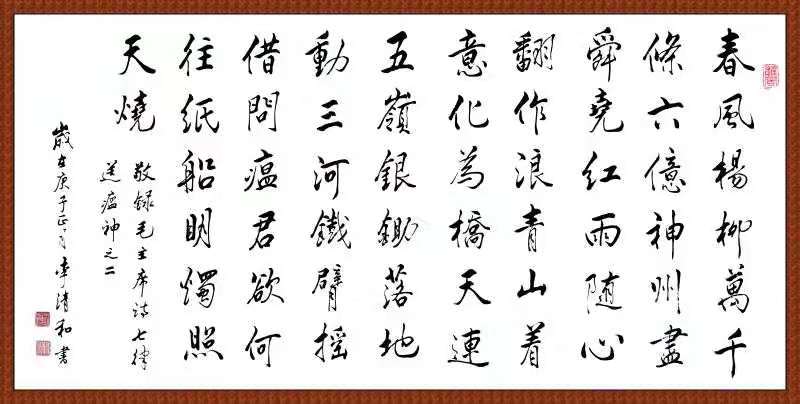 春風楊柳萬千
條六億神州盡
舜堯紅雨随心
翻作浪青山着
意化為橋天連
五嶺銀鋤落地
動三河鐵臂摇
借問瘟君欲何
往纸船明燭照
天燒
敬録毛主席詩七律
送瘟神之二
歲在庚子正月李清和書